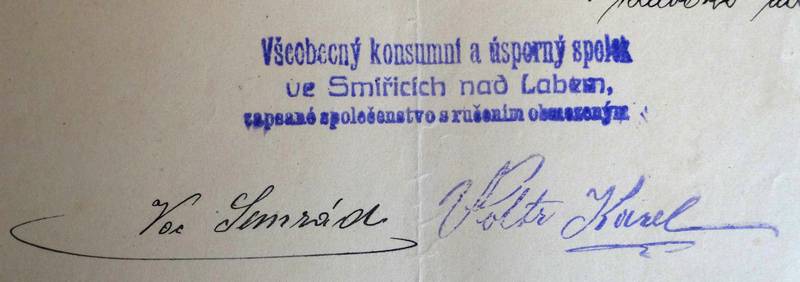 Všeobecný konsumní a úsporný spolek
ve Smiřicích nad Labem,
zapsané společenstvo s ručením obmezeným
Voc Semrád
Voltr Karel